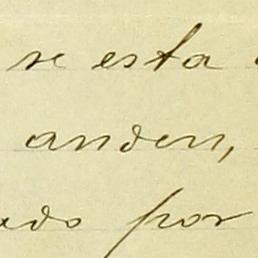 se esta
anden,
ado por